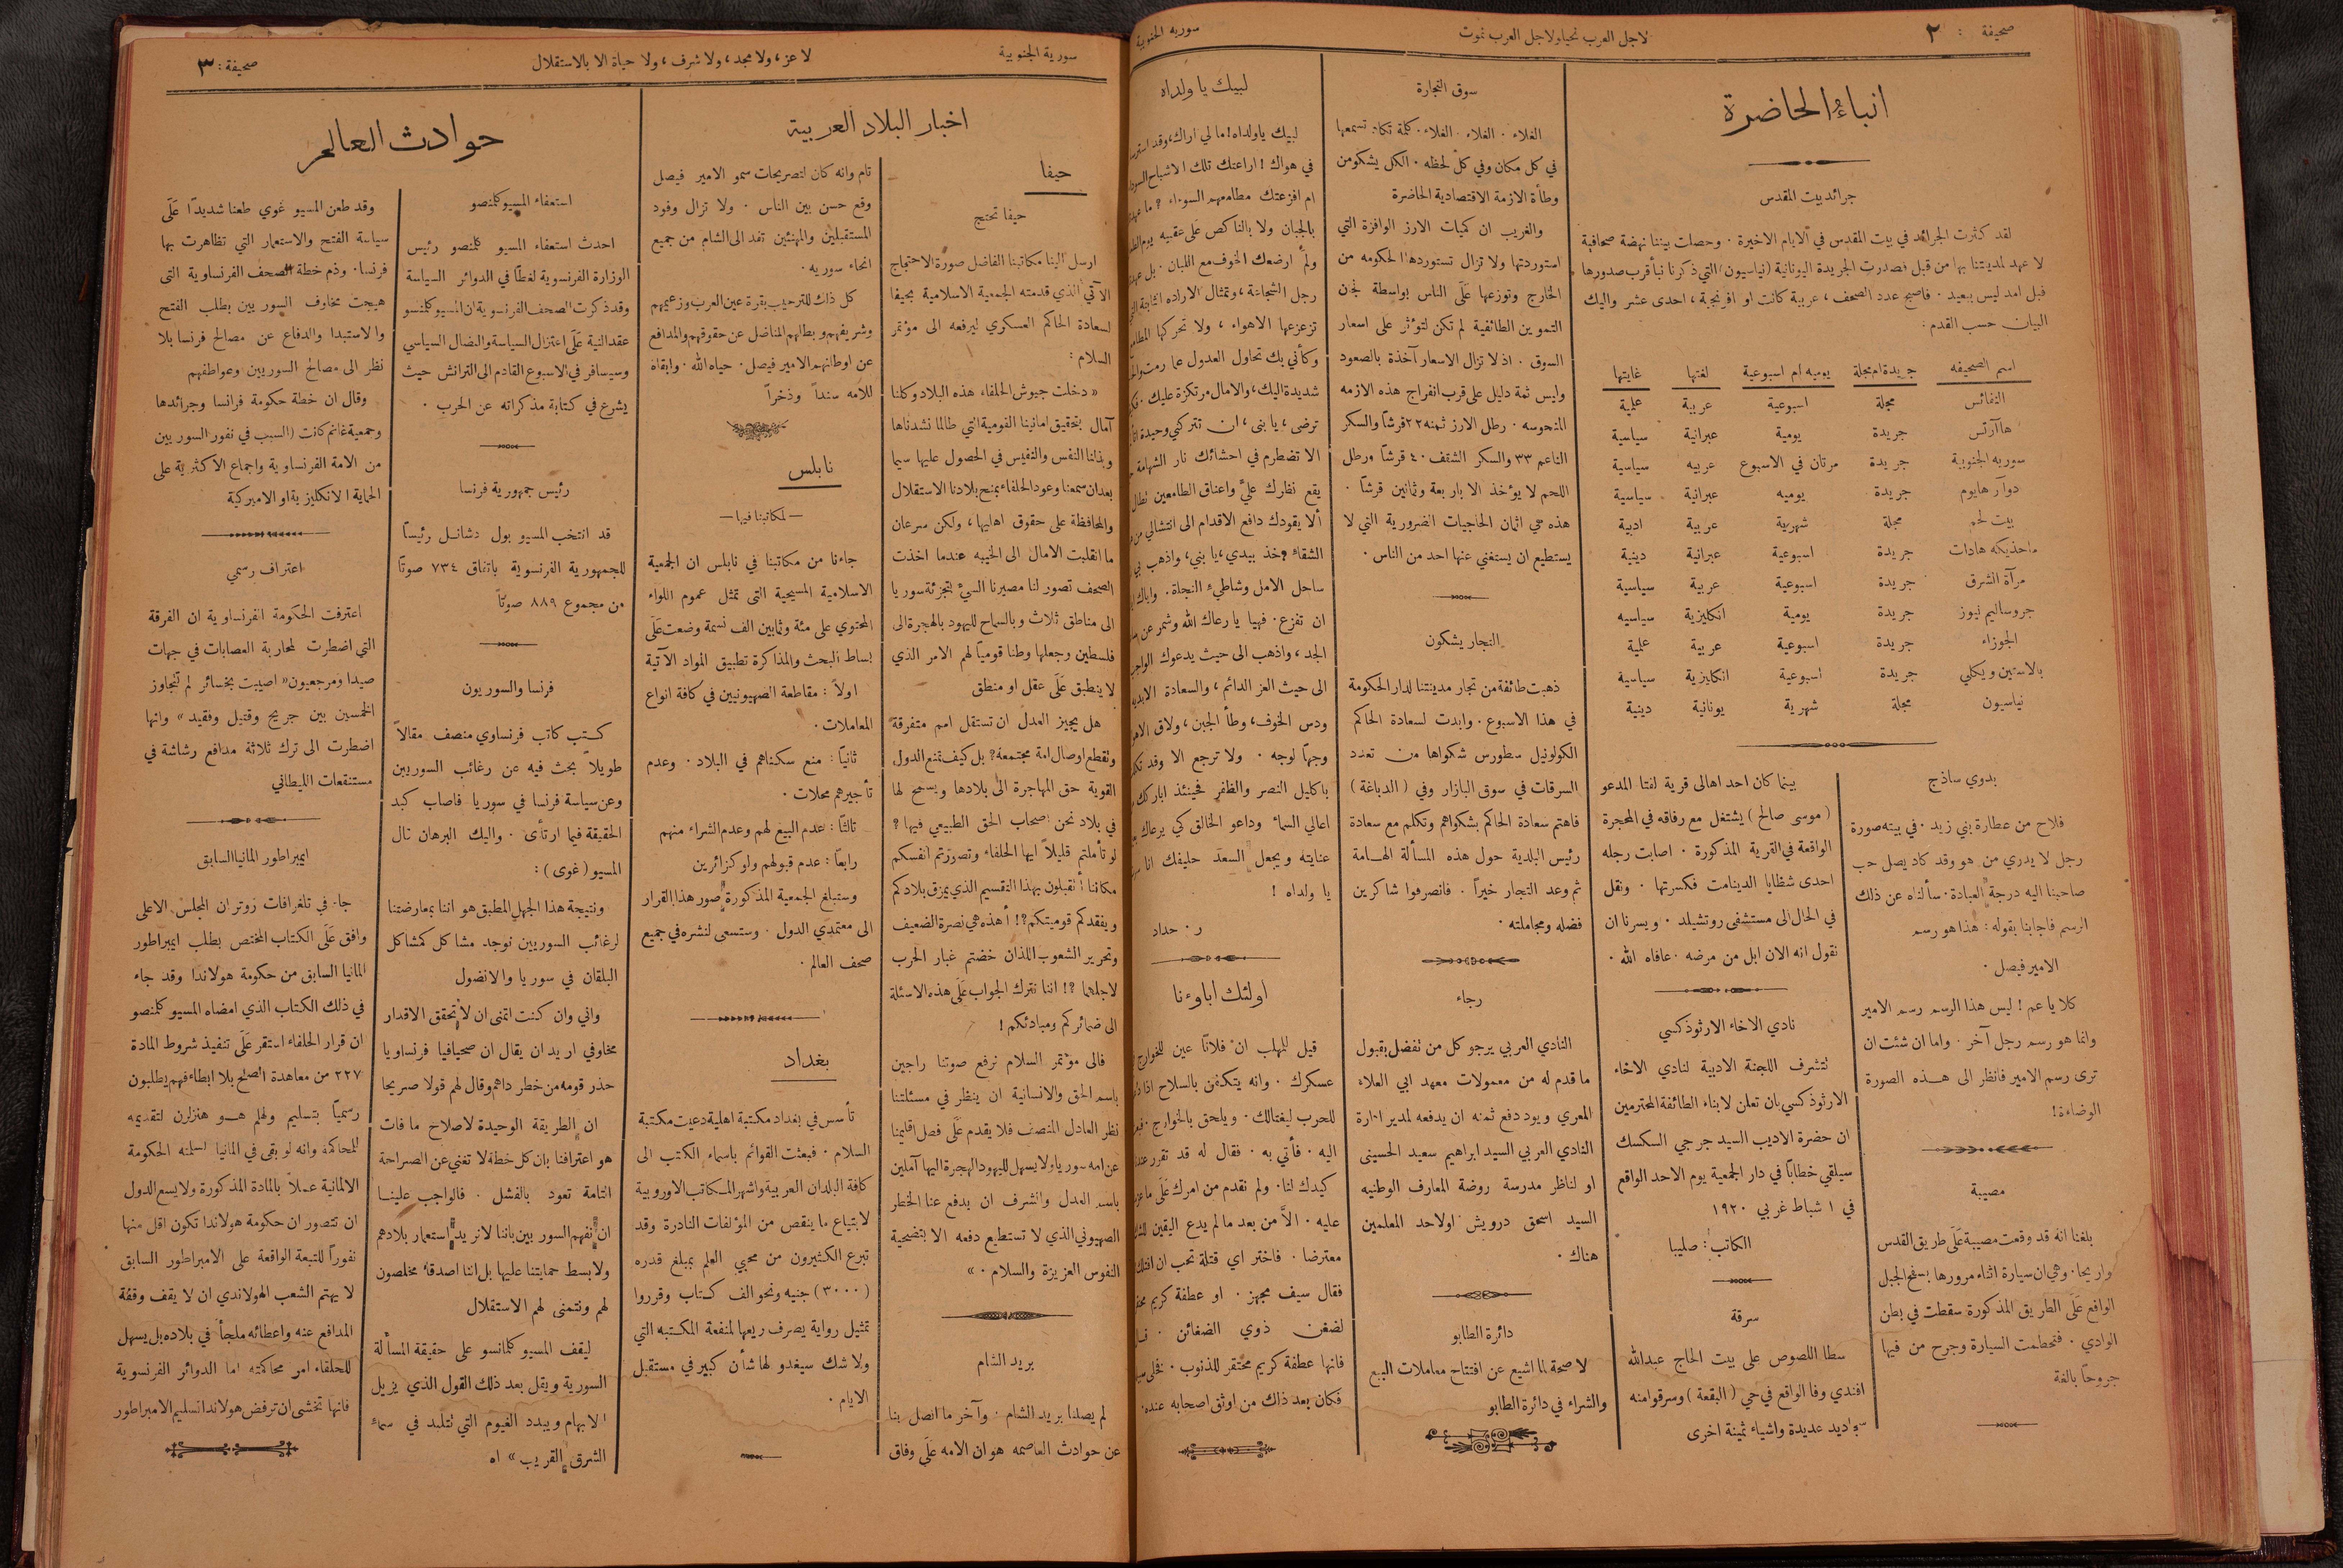 صحيفة : ٢
لاجل العرب نحيا ولاجل العرب نموت
سورية الجنوبية
انباء الحاضرة
جرائد بيت المقدس
لقد كثرت الجرائد في بيت المقدس في الايام الاخيرة . وحصلت بيننا نهضة صحافية
لا عهد لمدينتنا بها من قبل فصدرت الجريدة اليونانية (نياسيون) التي ذكرنا نبأ قرب صدورها
قبل امد ليس ببعيد . فاصبح عدد الصحف ، عربية كانت او افرنجية ، احدى عشر واليك
البيان حسب القدم :
اسم الصحيفه جريدة ام مجلة يوميه ام اسبوعية لغتها غايتها
النفائس مجلة اسبوعية عربية علمية
هاآرتس جريدة يومية عبرانية سياسية
سوريه الجنوبية جريدة مرتان في الاسبوع عربيه سياسية
دوآر هايوم جريدة يوميه عبرانية سياسية
بيت لحم مجلة شهرية عربية ادبية
هادات جريدة اسبوعية عبرانية دينية
مرآة الشرق جريدة اسبوعية عربية سياسية
جروسالیم نيوز جريدة يومية انكليزية سياسيه
الجوزاء جريدة اسبوعية عربية علمية
بالاستين ويكلي جريدة اسبوعية انكليزية سياسية
نياسيون مجلة شهرية يونانية دينية
بدوي ساذج
فلاح من عطارة بني زيد . في بيته صورة
رجل لا يدري من هو وقد كاد يصل حب
صاحبنا اليه درجة العبادة . سألناه عن ذلك
الرسم فاجابنا بقوله : هذا هو رسم
الامير فيصل .
كلا يا عم ! ليس هذا الرسم رسم الامير
وانما هو رسم رجل آخر . واما ان شئت ان
ترى رسم الامير فانظر الى هـذه الصورة
الوضاءة !
مصيبة
بلغنا انه قد وقعت مصيبة عَلَى طريق القدس
واريحا . وهي ان سيارة اثناء مرورها بسفح الجبل
الواقع عَلَى الطريق المذكورة سقطت في بطن
الوادي . فتحطمت السيارة وجرح من فيها
جروحاً بالغة
بينما كان احد اهالى قرية لفتا المدعو
( موسى صالح ) يشتغل مع رفاقه في المحجرة
الواقعة في القرية المذكورة . اصابت رجله
احدى شظايا الدينامت فكسرتها . ونقل
في الحال الى مستشفى روتشيلد . ويسرنا ان
نقول انه الان ابل من مرضه . عافاه الله .
نادي الاخاء الارثوذكسي
تتشرف اللجنة الادبية لنادي الاخاء
الارثوذكسي بان تعلن لابناء الطائفة المحترمين
ان حضرة الاديب السيد جرجي السكسك
سيلقي خطاباً في دار الجمعية يوم الاحد الواقع
في ١ شباط غربي ١٩٢٠
الكاتب : صليبا
سرقة
سطا اللصوص على بيت الحاج عبدالله
افندي وفا الواقع في حي ( البقعة ) وسرقوا منه
سجاديد عديدة واشياء ثمينة اخرى
سوق التجارة
الغلاء . الغلاء . الغلاء . كلمة تكاد تسمعها
في كل مكان وفي كل لحظه . الكل يشكو من
وطأة الازمة الاقتصادية الحاضرة
والغريب ان كميات الارز الوافرة التي
استوردتها ولا تزال تستوردها الحكومه من
الخارج وتوزعها عَلَى الناس بواسطة لجن
التموين الطائفية لم تكن لتؤثر على اسعار
السوق . اذ لا تزال الاسعار آخذة بالصعود
وليس ثمة دليل على قرب انفراج هذه الازمه
المنحوسه . رطل الارز ثمنه ٢٢ قرشاً والسكر
الناعم ٣٣ والسكر الشقف ٤٠ قرشاً ورطل
اللحم لا يؤخذ الا باربعة وثمانين قرشاً .
هذه هي اثمان الحاجيات الضرورية التي لا
يستطيع ان يستغني عنها احد من الناس .
التجار يشكون
ذهبت طائفة من تجار مدينتنا لدار الحكومة
في هذا الاسبوع . وابدت لسعادة الحاكم
الكولونيل سطورس شكواها من تعدد
السرقات في سوق البازار وفي ( الدباغة )
فاهتم سعادة الحاكم بشكواهم وتكلم مع سعادة
رئيس البلدية حول هذه المسألة الهـامة
ثم وعد التجار خيراً . فانصرفوا شاكرين
فضله ومجاملته .
رجاء
النادي العربي يرجو كل من تفضل بقبول
ما قدم له من معمولات معهد ابي العلاء
المعري ويود دفع ثمنه ان يدفعه لمدير ادارة
النادي العربي السيد ابراهيم سعيد الحسيني
او لناظر مدرسة روضة المعارف الوطنيه
السيد اسحق درويش او لاحد المعلمين
هناك .
دائرة الطابو
لا صحة لما اشيع عن افتتاح معاملات البيع
والشراء في دائرة الطابو
لبيك يا ولداه
لبيك ياولداه ! ما لي اراك ، وقد
في هواك ! اراعتك تلك الاشباح
ام افزعتك مطامعهم السوداء ؟ ما
بالجبان ولا بالناكص عَلَى عقبيه يوم
ولم ارضعك الخوف مع اللبان . بل
رجل الشجاعة ، وتمثال الاراده الثابتة
تزعزعها الاهواء ، ولا تحركها
وكأني بك تحاول العدول عما رمت
شديدة اليك ، والامال مرتكزة عليك .
ترضى ، يا بنى ، ان تتركني وحيدة
الا تضطرم في احشائك نار الشهامة
يقع نظرك عليَّ واعناق الطامعين
ألا يقودك دافع الاقدام الى انتشالي من
الشقاء ؟ خذ بيدي ، يا بني ، واذهب بي
ساحل الامل وشاطيء النجاة . واياك
ان تفزع . فهيا يا رعاك الله وشمر عن
الجد ، واذهب الى حيث يدعوك
الى حيث العز الدائم ، والسعادة
ودس الخوف ، وطأ الجبن ، ولاق
وجهاً لوجه . ولا ترجع الا وقد
باكليل النصر والظفر فحينئذ اباركك
اعالي السماء وداعو الخالق كي يرعاك
عنايته ويجعل السعد حليفك انا
يا ولداه !
ر . حداد
اولئك اباوءنا
قيل للمهلب ان فلاناً عين للخوارج
عسكرك . وانه يتكفن بالسلاح اذا
للحرب ليغتالك . ويلحق بالخوارج .
اليه . فأتي به . فقال له قد تقرر
كيدك لنا . ولم نقدم من امرك عَلَى
عليه . الاَّ من بعد ما لم يدع اليقين
معترضا . فاختر اي قتلة تحب ان
فقال سيف مجهز . او عطفة كريم
لضغن ذوي الضغائن .
فانها عطفة كريم محتقر للذنوب .
فكان بعد ذلك من اوثق اصحابه عنده .
سورية الجنوبية
لا عز ، ولا مجد ، ولا شرف ، ولا حياة الا بالاستقلال
صحيفة : ٣
اخبار البلاد العربية
حيفا
حيفا تحتج
ارسل الينا مكاتبنا الفاضل صورة الاحتجاج
الآتي الذي قدمته الجمعية الاسلامية بحيفا
لسعادة الحاكم العسكري ليرفعه الى مؤتمر
السلام :
« دخلت جيوش الحلفاء هذه البلاد وكلنا
آمال بتحقيق امانينا القومية التي طالما نشدناها
وبذلنا النفس والنفيس في الحصول عليها سيما
بعد ان سمعنا وعود الحلفاء بمنح بلادنا الاستقلال
والمحافظة على حقوق اهليها ، ولكن سرعان
ما انقلبت الامال الى الخيبه عندما اخذت
الصحف تصور لنا مصيرنا السيّء بتجزئة سوريا
الى مناطق ثلاث وبالسماح لليهود بالهجرة الى
فلسطين وجعلها وطنا قومياً لهم الامر الذي
لا ينطبق عَلَى عقل او منطق
هل يجيز العدل ان تستقل امم متفرقة
وتقطع اوصال امة مجتمعة ؟ بل كيف تمنع الدول
القوية حق المهاجرة الى بلادها ويسمح لها
في بلاد نحن اصحاب الحق الطبيعي فيها ؟
لو تأملتم قليلاً ايها الحلفاء وتصورتم انفسكم
مكاننا أتقبلون بهذا التقسيم الذي يمزق بلادكم
ويفقدكم قوميتكم ؟! أهذه هي نصرة الضعيف
وتحرير الشعوب اللذان خضتم غبار الحرب
لاجلهما ؟! اننا نترك الجواب عَلَى هذه الاسئلة
الى ضمائركم ومبادئكم !
فالى مؤتمر السلام نرفع صوتنا راجين
باسم الحق والانسانية ان ينظر في مسئلتنا
نظر العادل المنصف فلا يقدم عَلَى فصل اقليمنا
عن امه سوريا ولا يسهل لليهود الهجرة اليها آملين
باسم العدل والشرف ان يدفع عنا الخطر
الصهيوني الذي لا تستطيع دفعه الا بتضحية
النفوس العزيزة والسلام . »
بريد الشام
لم يصلنا بريد الشام . وآخر ما اتصل بنا
عن حوادث العاصمه هو ان الامه عَلَى وفاق
تام وانه كان لتصريحات سمو الامير فيصل
وقع حسن بين الناس . ولا تزال وفود
المستقبلين والمهنئين تفد الى الشام من جميع
انحاء سوريه .
كل ذلك للترحيب بقرة عين العرب وزعيمهم
وشريفهم وبطلهم المناضل عن حقوقهم والمدافع
عن اوطانهم الامير فيصل . حياه الله . وابقاه
للامه سنداً وذخراً
نابلس
— لمكاتبنا فيها —
جاءنا من مكاتبنا في نابلس ان الجمعية
الاسلامية المسيحية التى تمثل عموم اللواء
المحتوي على مئة وثمانين الف نسمة وضعت عَلَى
بساط البحث والمذاكرة تطبيق المواد الآتية
اولاً : مقاطعة الصهيونيين في كافة انواع
المعاملات .
ثانياً : منع سكناهم في البلاد . وعدم
تأجيرهم محلات .
ثالثاً : عدم البيع لهم وعدم الشراء منهم
رابعاً : عدم قبولهم ولو كزائرين
وستبلغ الجمعية المذكورة صور هذا القرار
الى معتمدي الدول . وستسعى لنشره في جميع
صحف العالم .
بغداد
تأسس في بغداد مكتبة اهلية دعيت مكتبة
السلام . فبعثت القوائم باسماء الكتب الى
كافة البلدان العربية واشهر المكاتب الاوروبية
لابتياع ما ينقص من المؤلفات النادرة وقد
تبرع الكثيرون من محبي العلم بمبلغ قدره
( ٣٠٠٠ ) جنيه ونحو الف كتاب وقرروا
تمثيل رواية يصرف ريعها لمنفعة المكتبه التي
ولا شك سيغدو لها شأن كبير في مستقبل
الايام .
حوادث العالم
استعفاء المسيو كلمنصو
احدث استعفاء المسيو كلمنصو رئيس
الوزارة الفرنسوية لغطاً في الدوائر السياسة
وقد ذكرت الصحف الفرنسوية ان المسيو كلمنسو
عقد النية عَلَى اعتزال السياسة والنضال السياسي
وسيسافر في الاسبوع القادم الى الترانش حيث
يشرع في كتابة مذكراته عن الحرب .
رئيس جمهورية فرنسا
قد انتخب المسيو بول دشانـل رئيساً
للجمهورية الفرنسوية باتفاق ٧٣٤ صوتاً
من مجموع ٨٨٩ صوتاً
فرنسا والسوريون
كـتب كاتب فرنساوي منصف مقالاً
طويلاً بحث فيه عن رغائب السوريين
وعن سياسة فرنسا في سوريا فاصاب كبد
الحقيقة فيما ارتأى . واليك البرهان قال
المسيو ( غوى ) :
ونتيجة هذا الجهل المطبق هو اننا بمعارضتنا
لرغائب السوريين نوجد مشاكل كمشاكل
البلقان في سوريا والانضول
واني وان كنت اتمنى ان لا تحقق الاقدار
مخاوفي اريد ان يقال ان صحيافيا فرنساويا
حذر قومه من خطر داهم وقال لهم قولا صريحا
ان الطريقة الوحيدة لاصلاح ما فات
هو اعترافنا بان كل خطة لا تغني عن الصراحة
التامة تعود بالفشل . فالواجب علينـا
ان نفهم السوريين باننا لا نريد استعمار بلادهم
ولا بسط حمايتنا عليها بل اننا اصدقاء مخلصون
لهم ونتمنى لهم الاستقلال
ليقف المسيو كلمانسو على حقيقة المسألة
السورية ويقل بعد ذلك القول الذي يزيل
الابهام ويبدد الغيوم التي تتلبد في سماء
الشرق القريب » اه
وقد طعن المسيو غوي طعنا شديداً عَلَى
سياسة الفتح والاستعمار التي تظاهرت بها
فرنسا . وذم خطة الصحف الفرنساوية التى
هيجت مخاوف السوريين بطلب الفتح
والاستبدا والدفاع عن مصالح فرنسا بلا
نظر الى مصالح السوريين وعواطفهم
وقال ان خطة حكومة فرانسا وجرائدها
وجمعية غانم كانت السبب في نفور السوريين
من الامة الفرنساوية واجماع الاكثرية على
الحماية الانكليزية او الاميركية
اعتراف رسمي
اعترفت الحكومة الفرنساوية ان الفرقة
التي اضطرت لمحاربة العصابات في جهات
صيدا ومرجعيون « اصيبت بخسائر لم تتجاوز
الخمسين بين جريح وقتيل وفقيد » وانها
اضطرت الى ترك ثلاثة مدافع رشاشة في
مستنقعات الليطاني
ايمبراطور المانيا السابق
جاء في تلغرافات روتر ان المجلس الاعلى
وافق عَلَى الكتاب المختص بطلب ايمبراطور
المانيا السابق من حكومة هولاندا وقد جاء
في ذلك الكتاب الذي امضاه المسيو كلمنصو
ان قرار الحلفاء استقر عَلَى تنفيذ شروط المادة
٢٢٧ من معاهدة الصلح بلا ابطاء فهم يطلبون
رسمياً بتسليم ولهلم هـو هنزلرن لتقديمه
للمحاكمة وانه لو بقى في المانيا لسلمته الحكومة
الالمانية عملاً بالمادة المذكورة ولا يسع الدول
ان تتصور ان حكومة هولاندا تكون اقل منها
نفوراً للتبعة الواقعة على الامبراطور السابق
لا يهتم الشعب الهولاندي ان لا يقف وقفة
المدافع عنه واعطائه ملجأ في بلاده بل يسهل
للحلفاء امر محاكمته اما الدوائر الفرنسوية
فانها تخشى ان ترفض هولاندا تسليم الامبراطور